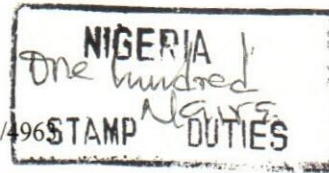 NIGERIA
One hundred
Naira
/4963 STAMP DUTIES